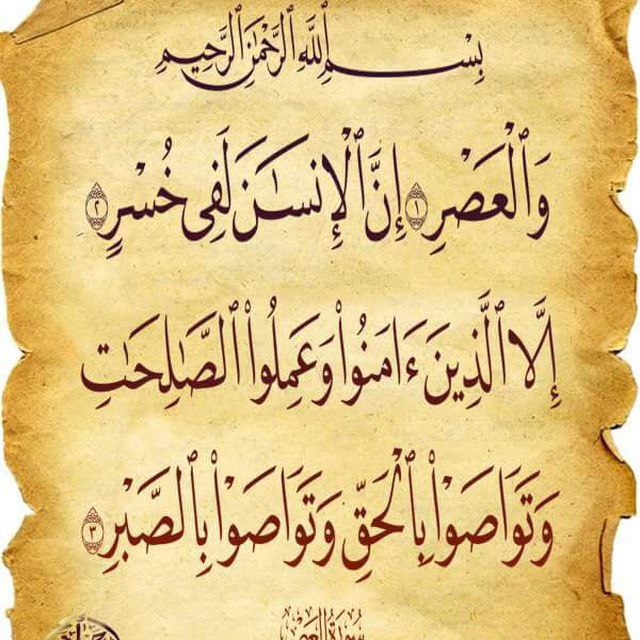 بِسْمِ ٱللَّهِ ٱلرَّحْمَٰنِ ٱلرَّحِيمِ
وَٱلْعَصْرِ ١ إِنَّ ٱلْإِنسَٰنَ لَفِى خُسْرٍ ٢
إِلَّا ٱلَّذِينَ ءَامَنُوا۟ وَعَمِلُوا۟ ٱلصَّٰلِحَٰتِ
وَتَوَاصَوْا۟ بِٱلْحَقِّ وَتَوَاصَوْا۟ بِٱلصَّبْرِ ٣
سُورَةُ العَصْرِ